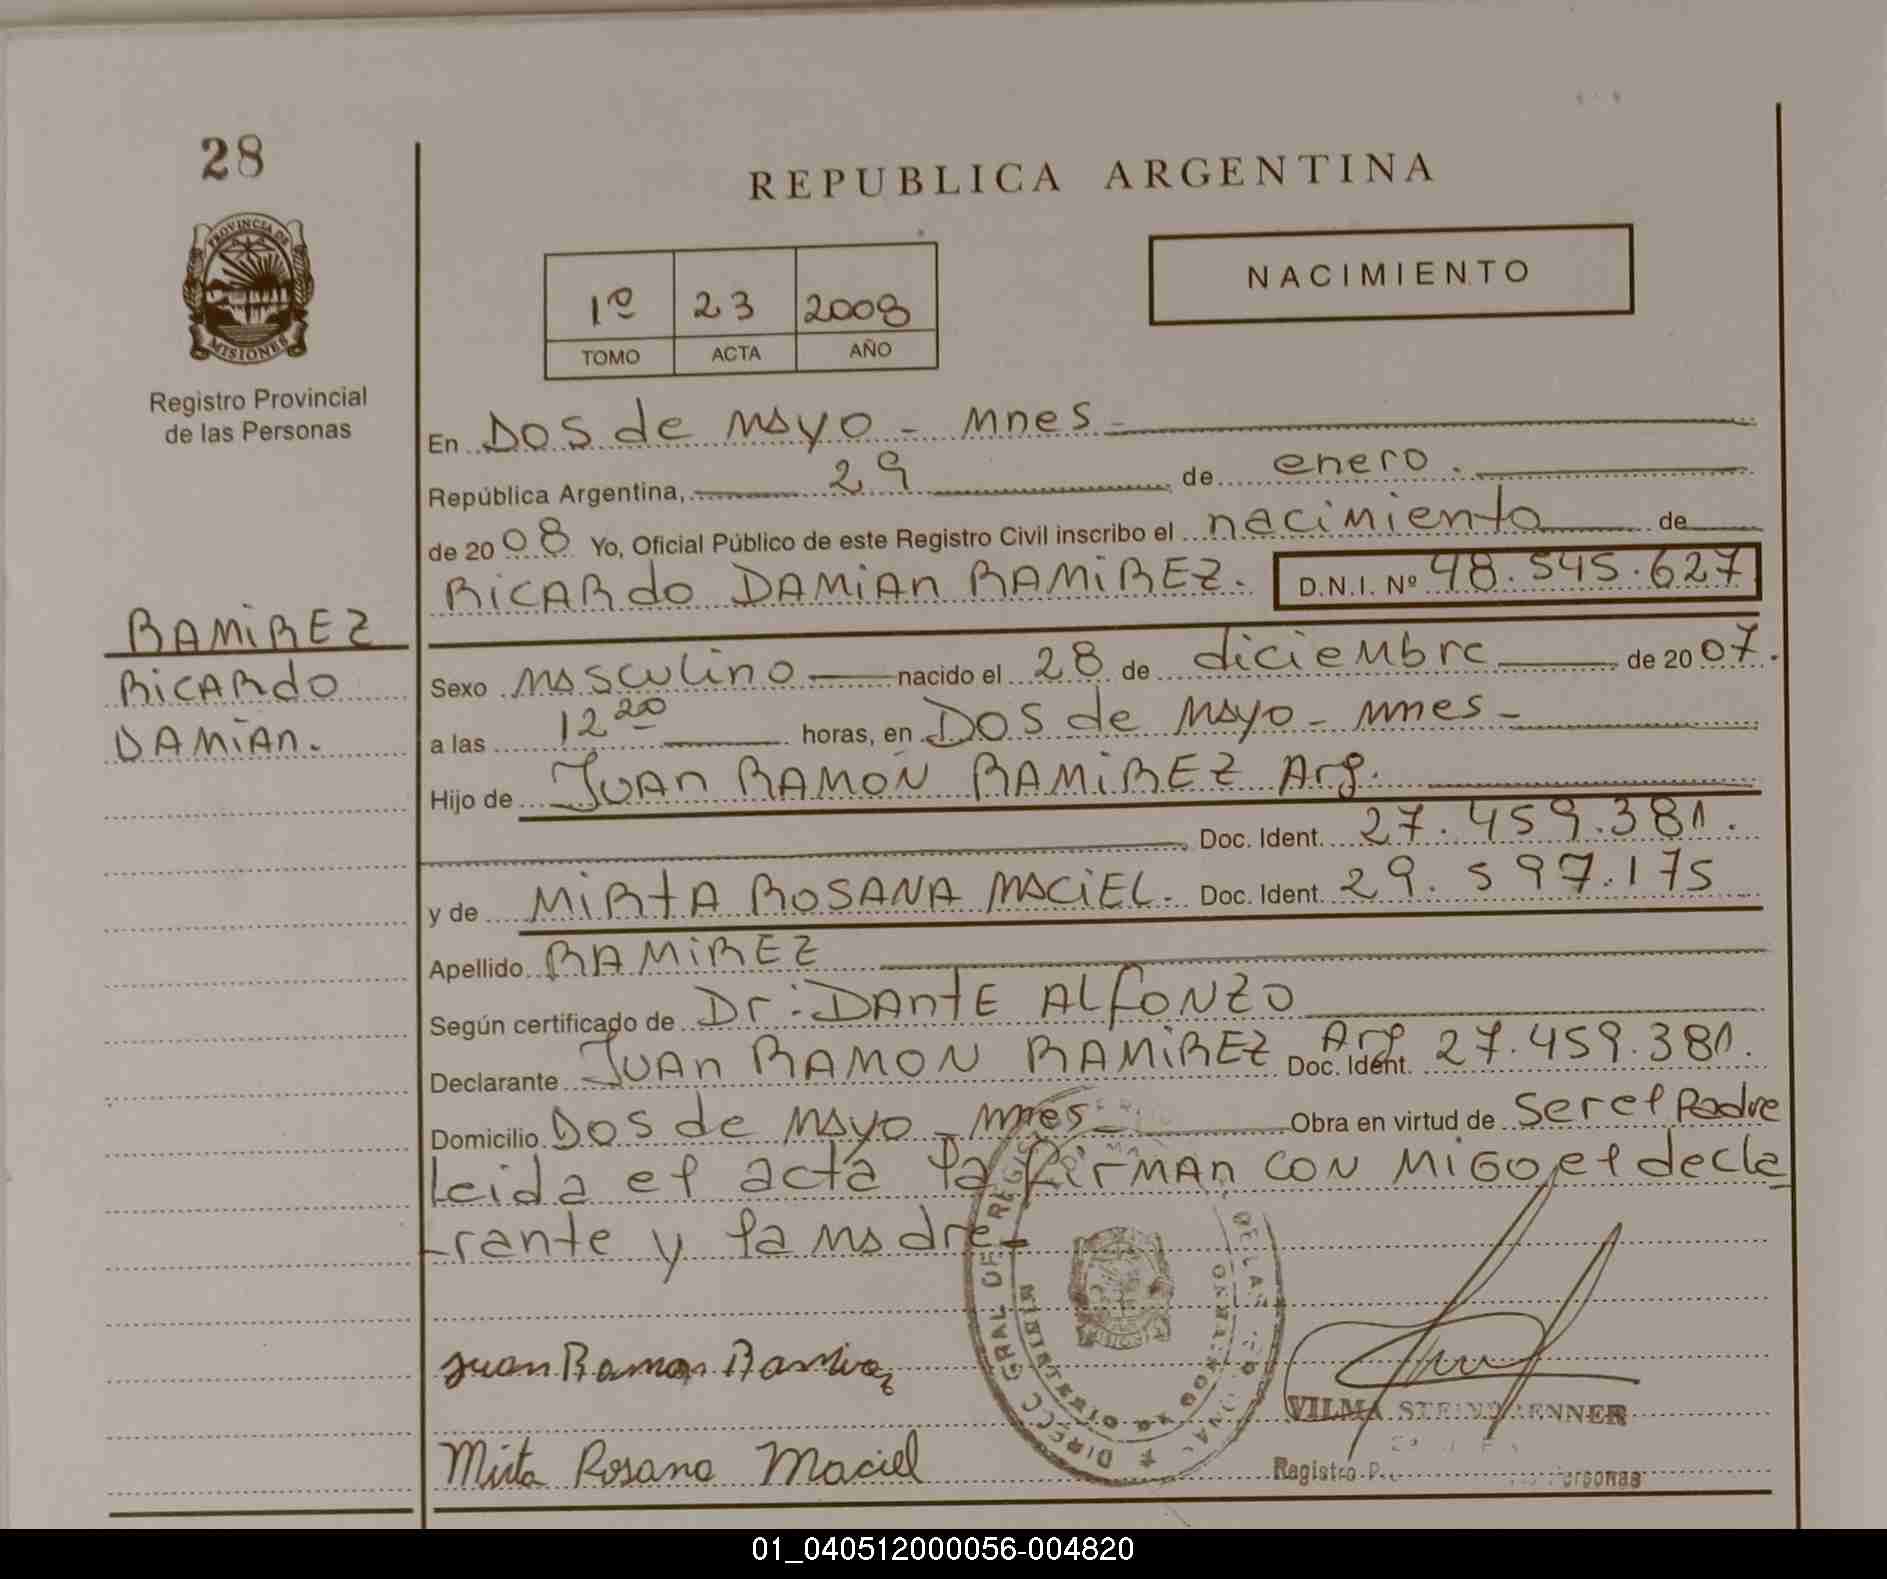 28
PROVINCIA DE
MISIONES
Registro Provincial
de las Personas
REPUBLICA ARGENTINA
NACIMIENTO
1º 23 2008
TOMO ACTA AÑO
En Dos de Mayo - Mnes -
República Argentina, 29 de enero.
de 2008 Yo, Oficial Público de este Registro Civil inscribo el nacimiento de
RICARdo DAMIAn RAMIREZ. D.N.I. Nº 48.545.627
RAMIREZ
RICARdO
DAMIAn.
Sexo masculino nacido el 28 de diciembre de 2007.
a las 12 20 horas, en Dos de Mayo - Mnes -
Hijo de JUAn RAMÓN RAMIREZ Arg.
Doc. Ident. 27.459.381.
y de MIRtA ROSANA MACIEL. Doc. Ident. 29.597.175
Apellido RAMIREZ
Según certificado de Dr: DAntE ALfONZO
Declarante JUAn RAMON RAMIREZ Arg Doc. Ident. 27.459.381.
Domicilio Dos de Mayo - Mnes - Obra en virtud de ser el Padre
Leida el acta la firMAn CON MIGO el decla
-rante y la madre -
Juan Ramon Ramirez
Mirta Rosana Maciel
DIRECC GRAL DE REGIS
DE LAS
VILMA STEINBRENNER
Registro P. Personas
01_040512000056-004820